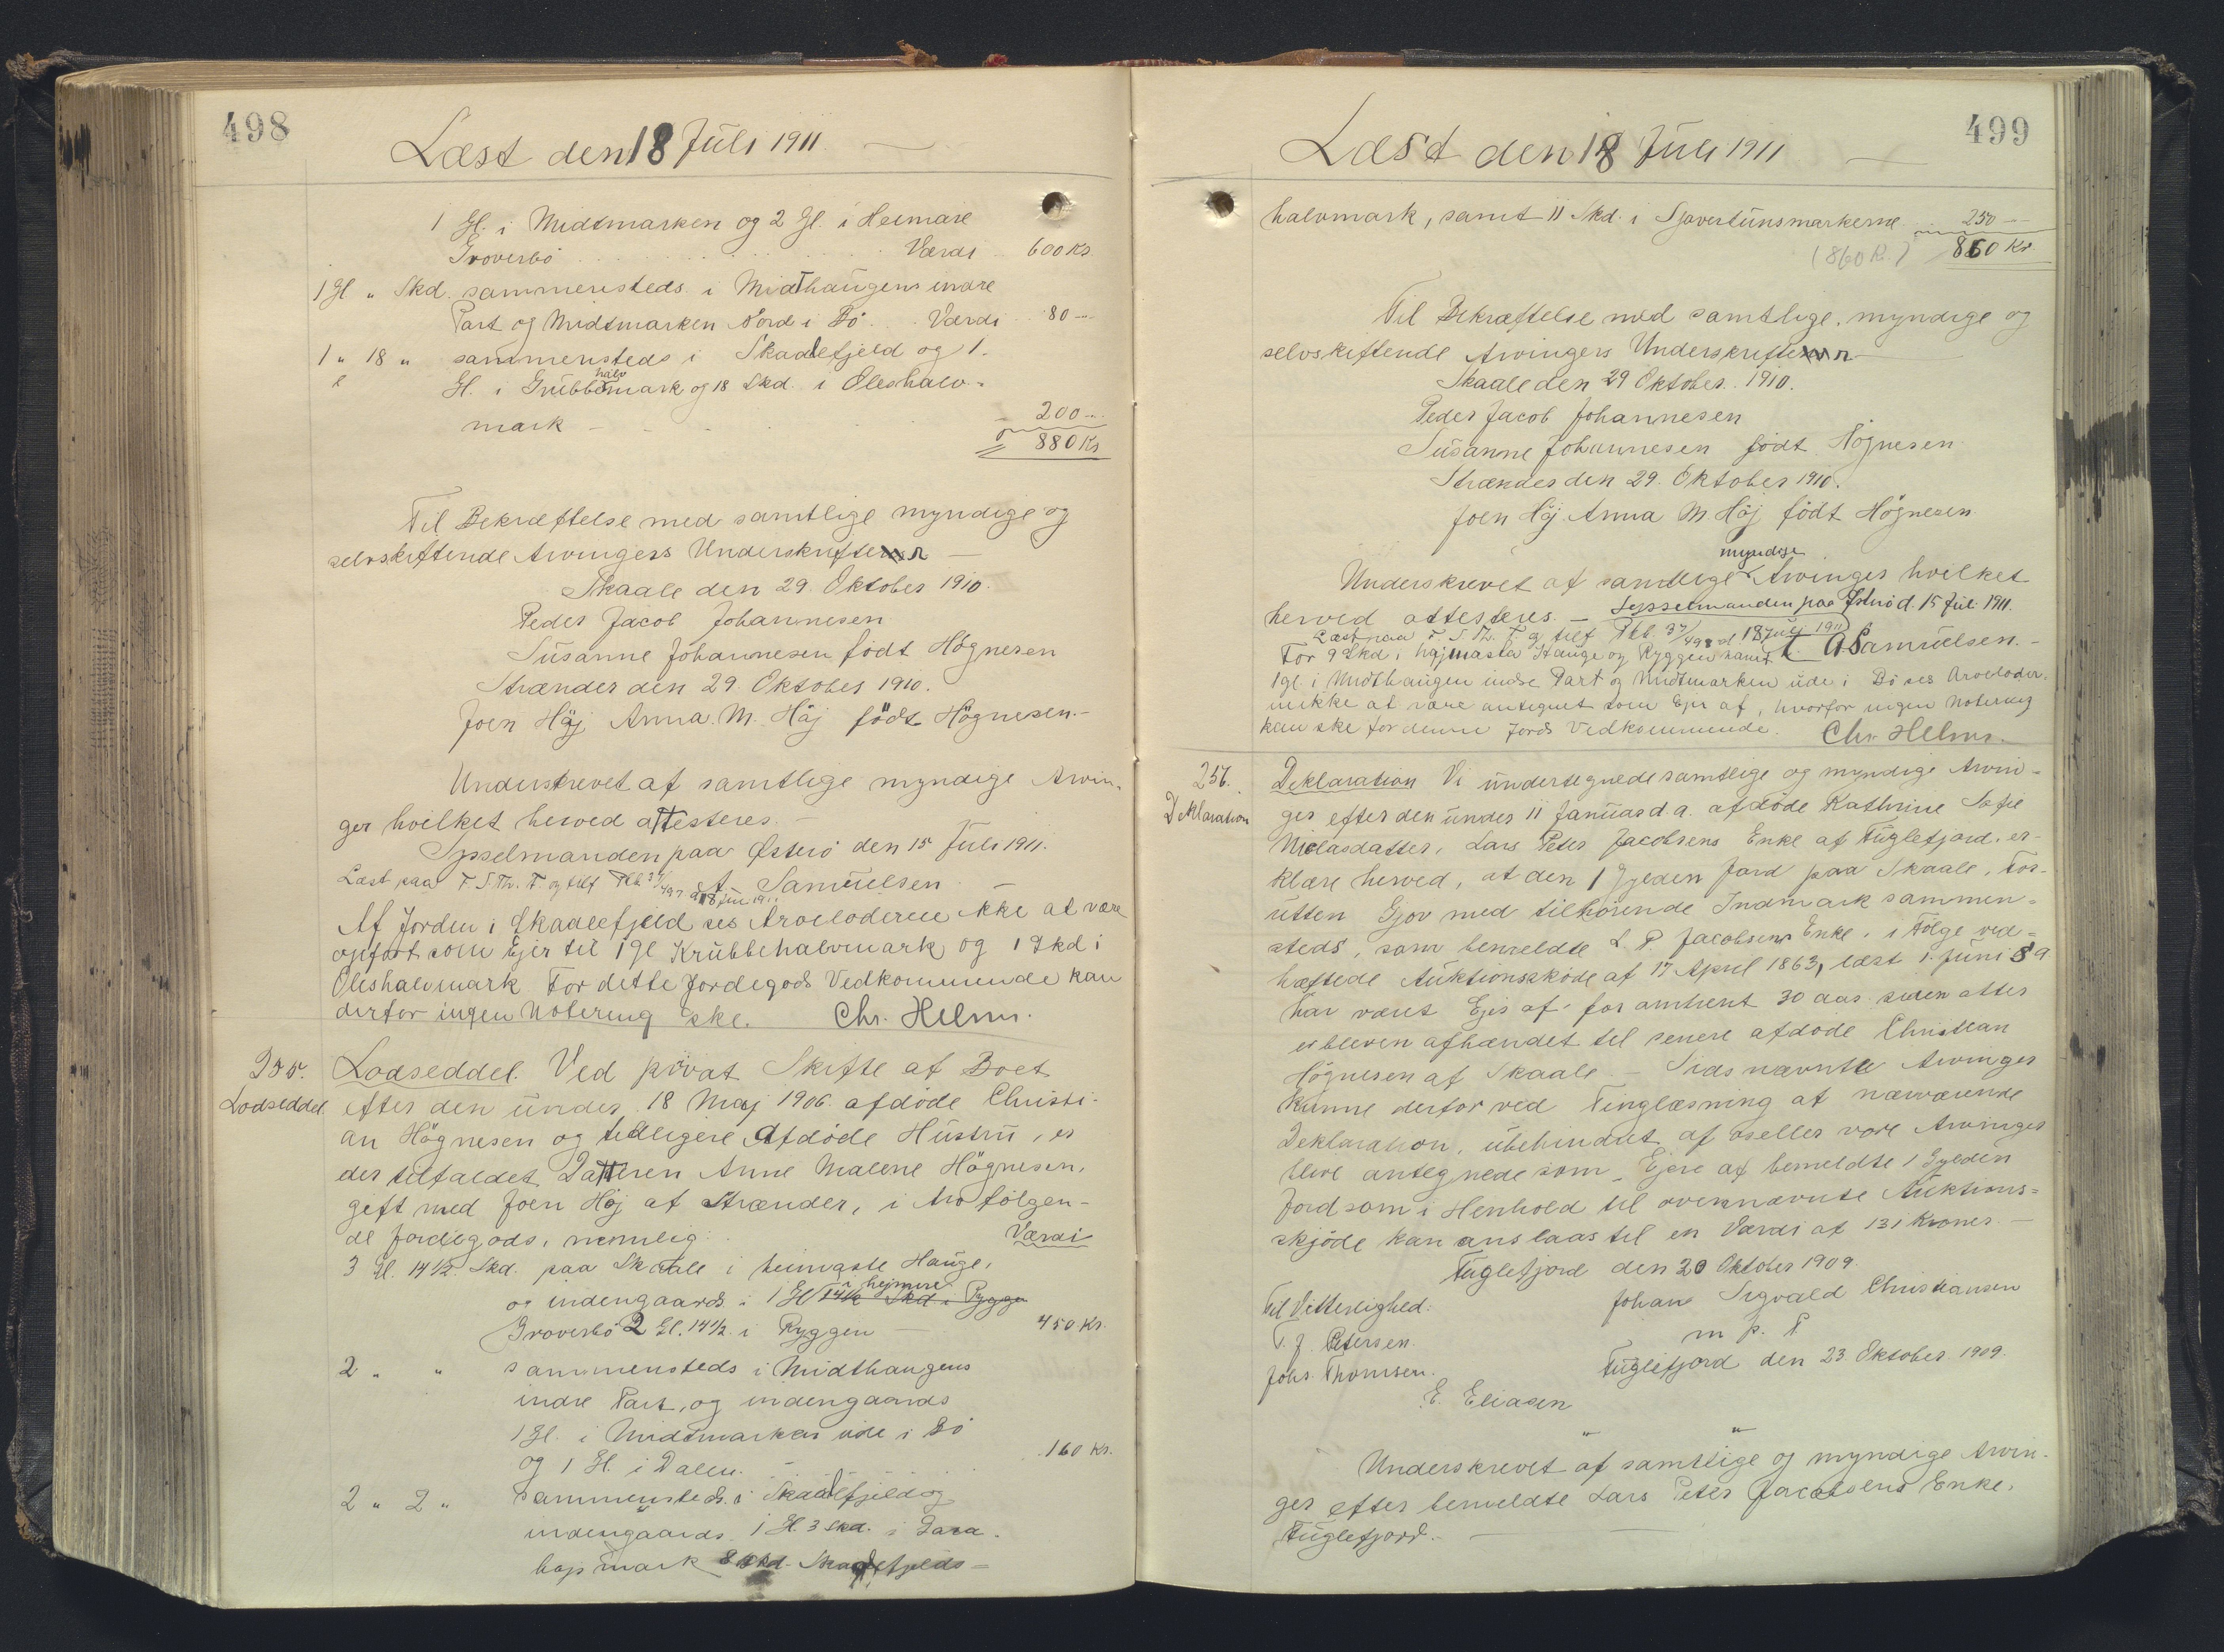 498
Læst den 18 Juli 1911
1 Gl. i Midtmarken og 2 Gl. i Heimare
Groverbö . . . Værdi 600 Kr.
1 Gl " Skd. sammensteds i Midthaugens indre
Part og Midtmarken Nord i Bö . . Værdi 80 -
1 " 18 " sammensteds i Skaalefjeld og 1
Gl. i Grubbehalvmark og 18 Skd. i Oleshalv-
mark - 200 -
880 Kr
Til Bekræftelse med samtlige myndige og
selvskiftende Arvingers Underskrifter
Skaale den 29. Oktober 1910.
Peder Jacob Johannesen
Susanne Johannesen födt Högnesen
Strænder den 29 Oktober 1910.
Joen Höj Anna M. Höj födt Högnesen.-
Underskrevet af samtlige myndige Arvin-
ger hvilket herved attesteres. -
Sysselmanden paa Österö den 15 Juli 1911.
A. Samuelsen
Læst paa F. S. Th. F. og tilf Ptb. 37/497 d 18 Juli 1911
Af Jorden i Skaalefjeld ses Arveladerne ikke at være
opført som Ejer til 1 gl Krubbehalvmark og 1 Skd i
Oleshalvmark For dette Jordegods Vedkommende kan
derfor ingen Notering ske. Chr. Helms.
255.
Lodseddel.
Lodseddel. Ved privat Skifte af Boet
efter den under 18 Maj 1906 afdöde Christi-
an Högnesen og tidligere Afdöde Hustru, er
der tilfaldet Datteren Anne Malene Högnesen,
gift med Joen Höj af Strænder, i Arv fölgen-
de Jordegods, nemlig: Værdi
3 Gl. 14 1/2 Skd. paa Skaale i heimaste Hauge,
og indengaards i 1 Gl 14 1/2 Skd i Rygge i hejmere
Groverbö 2 Gl. 14 1/2 i Ryggen - 450 Kr.
2 " " sammensteds i Midthaugens
indre Part, og indengaards
1 Gl. i Midtmarken ude i Bö
og 1 Gl. i Dalen. 160 Kr.
2 " 2 " sammensteds i Skaalefjeld og
indengaards 1 Gl. 3 Skd. i
mark 8 Skd. Skaalefjelds-
499
Læst den 18 Juli 1911
halvmark, samt 11 Skd. i Sjovertunsmarkerne 250 -
(860 K.) 860 Kr
Til Bekræftelse med samtlige, myndige og
selvskiftende Arvingers Underskrifter
Skaale den 29 Oktober 1910.
Peder Jacob Johannesen
Susanne Johannesen födt Högnesen
Strænder den 29. Oktober 1910.
Joen Höj Anna M. Höj födt Högnesen
Underskrevet af samtlige myndige Arvinger hvilket
herved attesteres. - Sysselmanden paa Österö d. 15 Juli 1911.
A Samuelsen.-
Læst paa F. S. Th. F. og tilf Ptb. 37/498 d 18 Juli 1911
For 9 Skd i hejmasta Hauge og Ryggen samt
1 gl. i Midthaugen indre Part og Midtmarken ude i Bö ses Arvelader-
ne ikke at være antegnet som Ejer af, hvorfor ingen Notering
kan ske for denne Jords Vedkommende. Chr. Helms.
256.
Deklaration
Deklaration Vi undertegnede samtlige og myndige Arvin-
ger efter den under 11 Januar d. a. afdöde Kathrine Sofie
Niclasdatter, Lars Peter Jacobsens Enke af Fuglefjord, er-
klære herved, at den 1 Gylden Jord paa Skaale, For-
utten Gjov med tilhörende Indmark sammen-
steds, som bemeldte L. P. Jacobsens Enke, i Fölge ved-
hæftede Auktionsskøde af 17 April 1863, læst 1. Juni s a
har været Ejer af for omtrent 30 aar siden atter
er bleven afhændet til senere afdöde Christian
Högnesen af Skaale. - Sidsnævnte Arvinger
kunne derfor ved Tinglæsning af nærværende
Deklaration, ubehindret af os eller vore Arvinger
blive antegnede som Ejere af bemeldte 1 Gylden
Jord som i Henhold til ovennævnte Auktions-
skjöde kan anslaas til en Værdi af 131 Kroner. -
Fuglefjord den 20 Oktober 1909.
Til Vitterlighed: Johan Sigvald Christiansen
T. J. Petersen. m. p. P
Johs. Thomsen. Fuglefjord den 23. Oktober 1909.
E. Eliasen
" "
Underskrevet af samtlige og myndige Arvin-
ger efter bemeldte Lars Peter Jacobsens Enke,
Fuglefjord. -